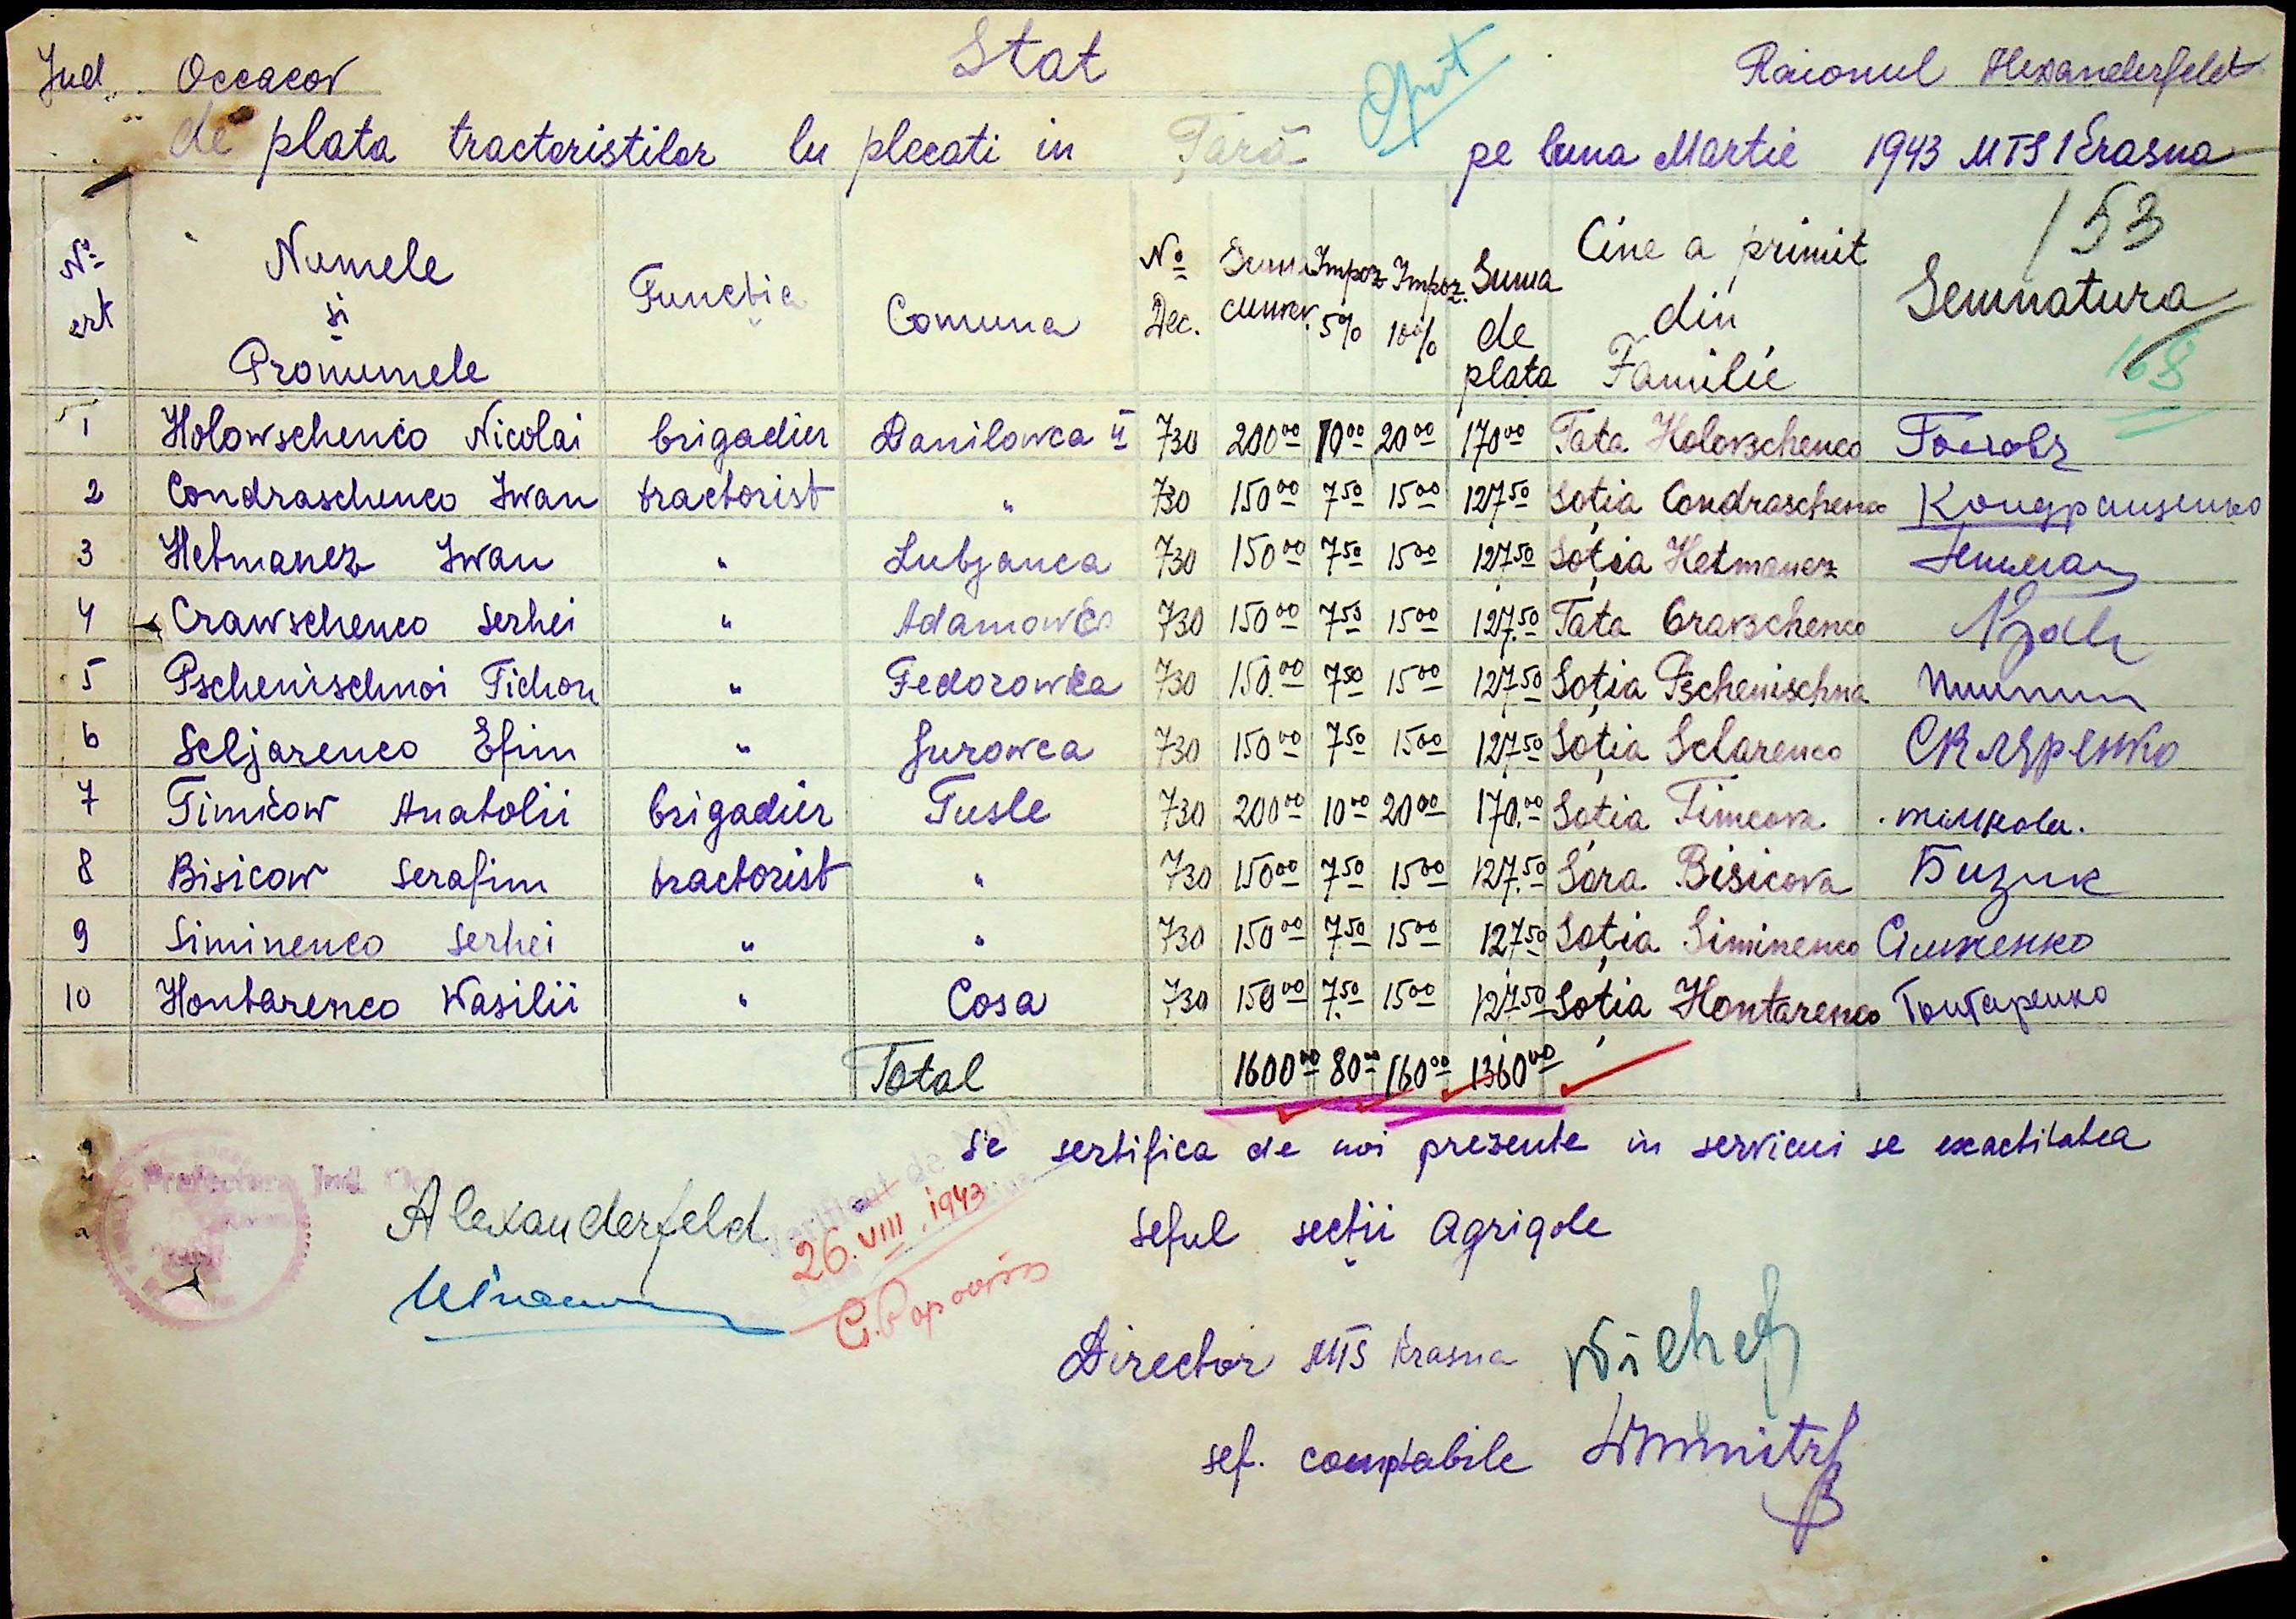 Jud. Occacov Stat Opt Raionul Alexanderfeld
de plata tractoristilor lu plecati in Țară pe luna Martie 1943 MTS 1 Crasna
153
No ert Numele si Pronumele Funcția Comuna No Dec. Suma cuven. Impoz 5% Impoz. 10% Suma de plata Cine a primit din Familie Semnatura
168
1 Holowschenco Nicolai brigadier Danilowca II 730 200 00 10 00 20 00 170 00 Tata Holowschenco Головз
2 Condraschenco Iwan tractorist " 730 150 00 7 50 15 00 127 50 Soția Condraschenco Кондращенко
3 Hetmanez Iwan " Lubjanca 730 150 00 7 50 15 00 127 50 Soția Hetmanez
4 Crawschenco Serhei " Adamowca 730 150 00 7 50 15 00 127.50 Tata Crawschenco
5 Pschenischnoi Tichon " Fedorowca 730 150.00 7 50 15 00 127 50 Soția Pschenischna
6 Scljarenco Efim " Gurowca 730 150 00 7 50 15 00 127 50 Soția Sclarenco Скляренко
7 Timcow Anatolii brigadier Tusle 730 200 00 10 00 20 00 170.00 Soția Timcova тимкова.
8 Bisicow Serafim tractorist " 730 150 00 7 50 15 00 127.50 Sora Bisicova Бизик
9 Siminenco Serhei " " 730 150 00 7 50 15 00 127 50 Soția Siminenco Симиненко
10 Hontarenco Wasilii " Cosa 730 150 00 7.50 15 00 127 50 Soția Hontarenco Гонтаренко
Total 1600 00 80 00 160 00 1360 00
Se sertifica de noi prezente in serviciu se exactitatea
Prefectura Jud.
Alexanderfeld
Verificat de
26.VIII.1943
C. Popovici
Seful secții Agrigole
Director MTS Krasna
sef. comptabile